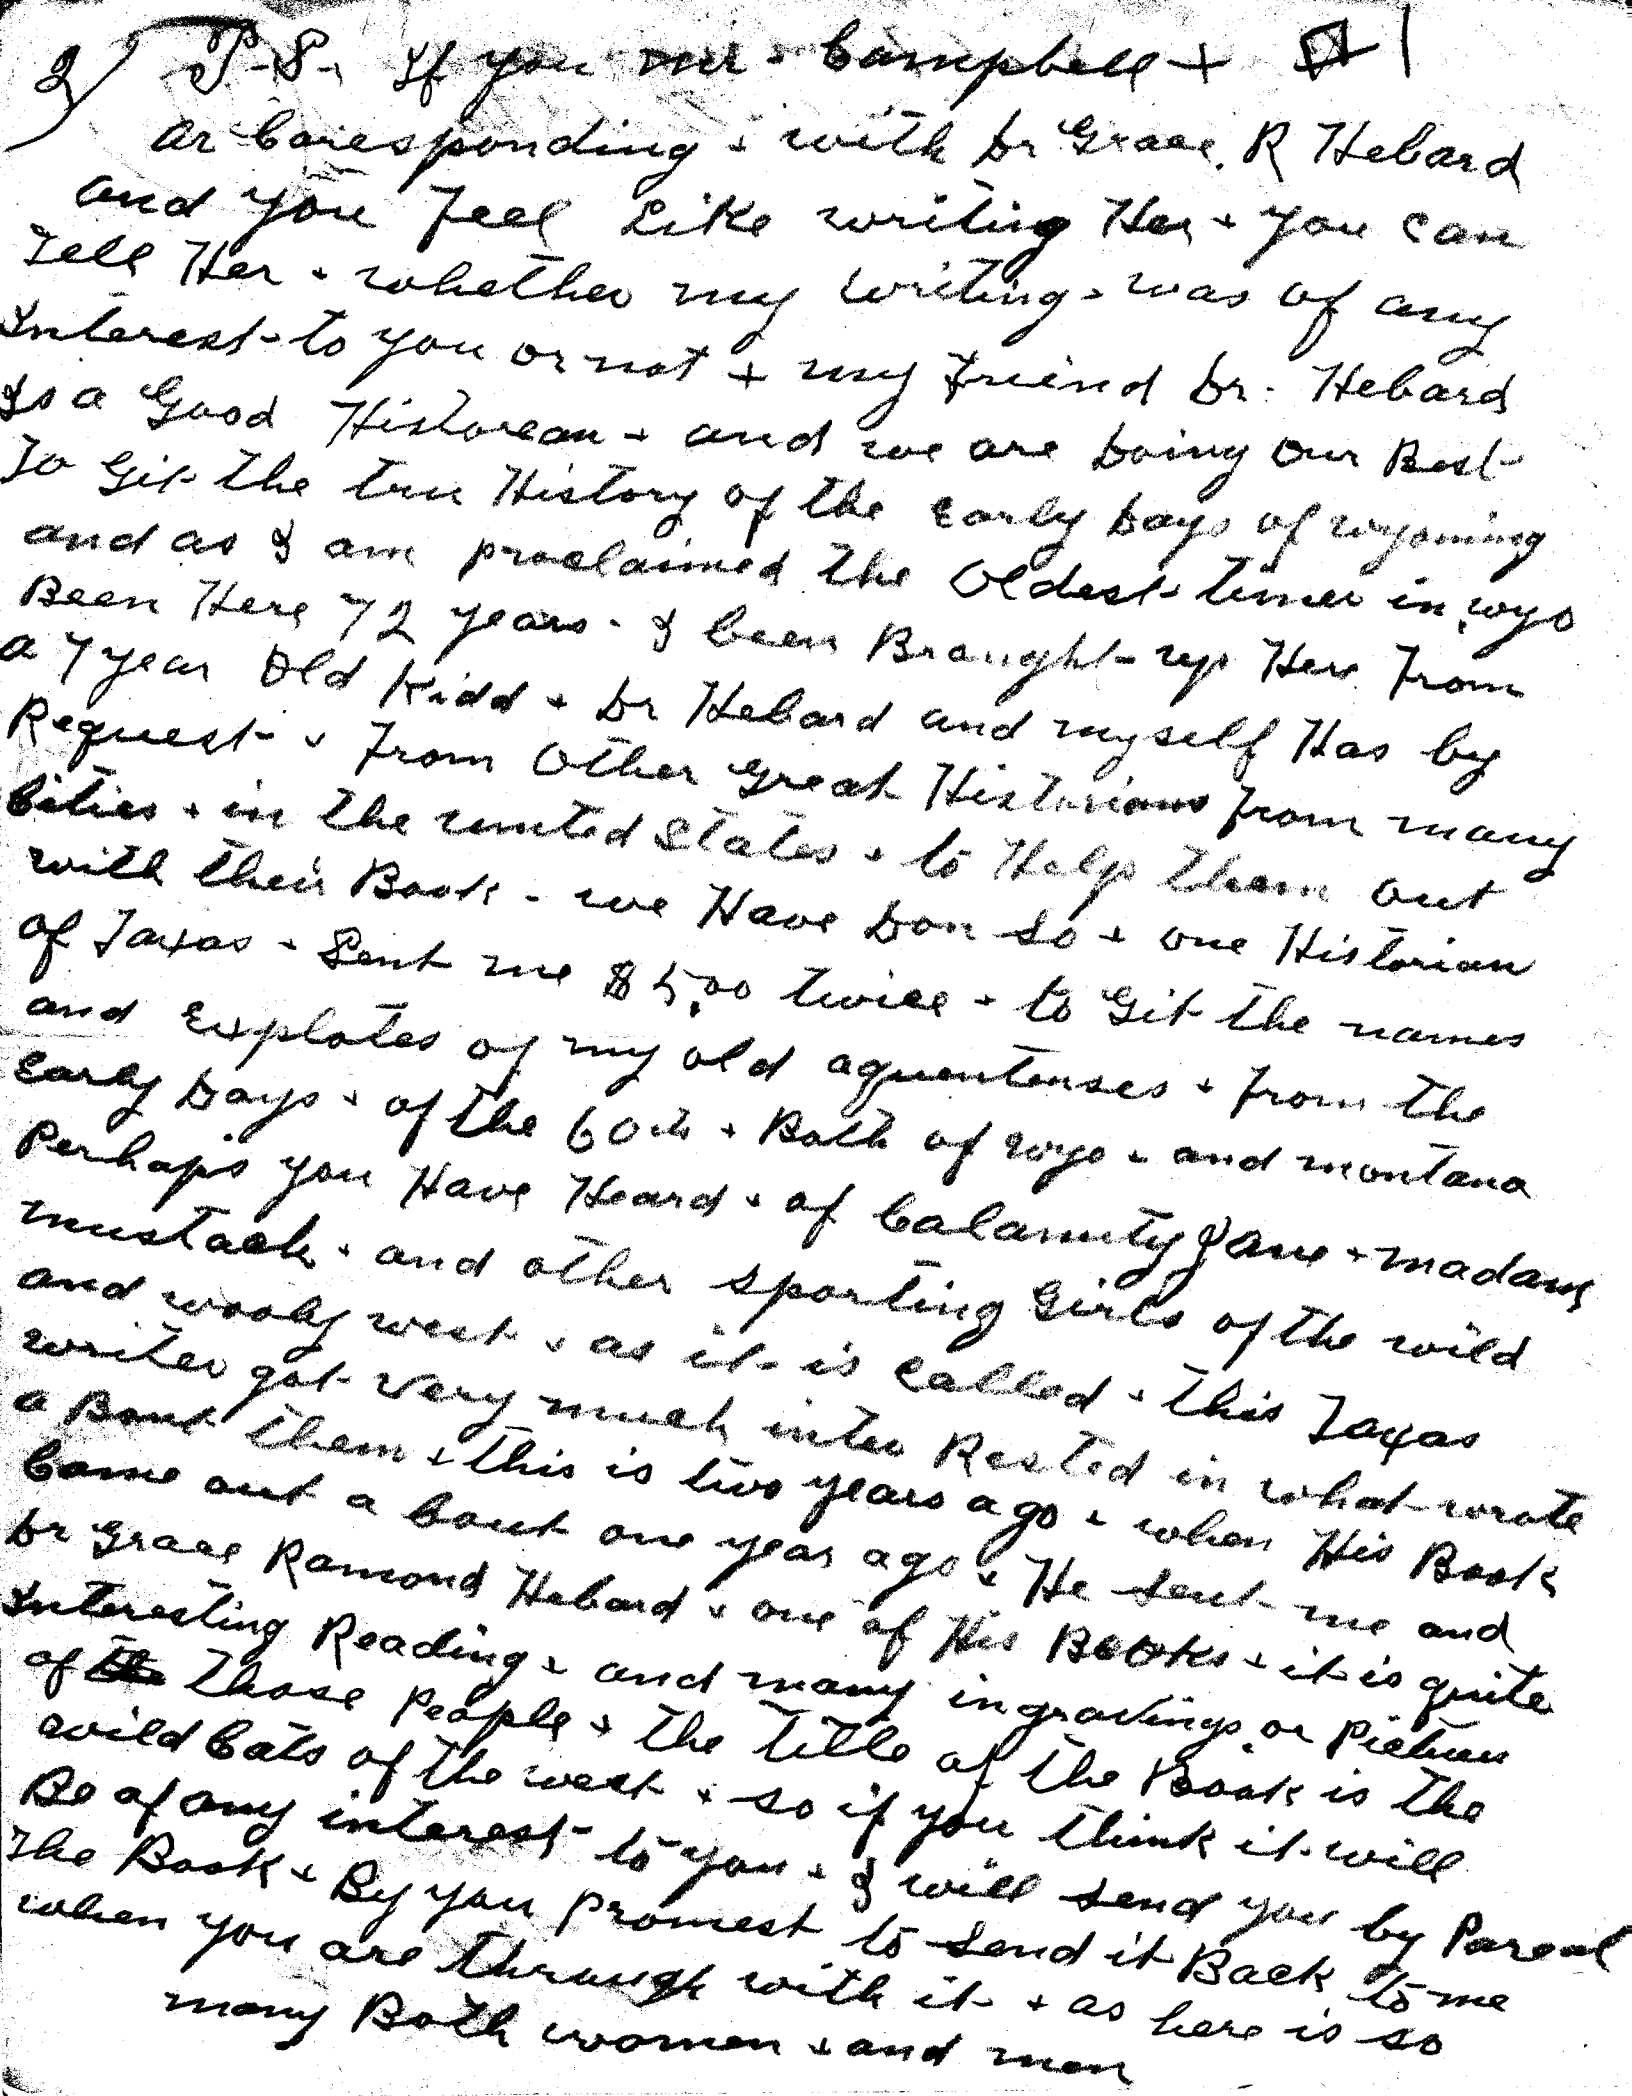 2) P.S. If you mr. Campbell +
ar Coresponding + with Dr Grace. R Hebard
and you Feel Like writing Her + you can
Tell Her + whether my writing + was of any
Interest to you or not + my Friend Dr. Hebard
Is a Good Historean + and we are Doing Our Best
To Git the tru History of the Early Days of wyoming
and as I am proclaimed the Oldest timer in wyo
Been Here 72 years - I been Braught up Here From
a 7 year Old Kidd + Dr Hebard and myself Has by
Request + From Other Great Historians from many
Cities + in the united States + to Help them out
with their Book - we Have Don so + one Historian
of Taxas + Sent me $5.00 twice + to Git the names
and Explotes of my old aquentenses + From the
Early Days + of the 60th + Both of wyo + and montana
Perhaps you Have Heard + of Calamity Jane + madam
mustach + and other sporting Girls of the wild
and wooly west + as it is called + this Taxas
writer got very much inter Rested in what wrote
a Bout them + this is two years ago + when His Book
Came out a bout one year ago + He sent me and
Dr Grace Ramond Hebard + one of His Books + it is quite
Interesting Reading + and many ingravings or Pictures
of those People + the title of the Book is the
wild Cats of the west + so if you think it will
Be of any interest to you + I will send you by Parcel
The Book + By you promest to send it Back to me
when you are through with it + as here is so
many Both women + and men